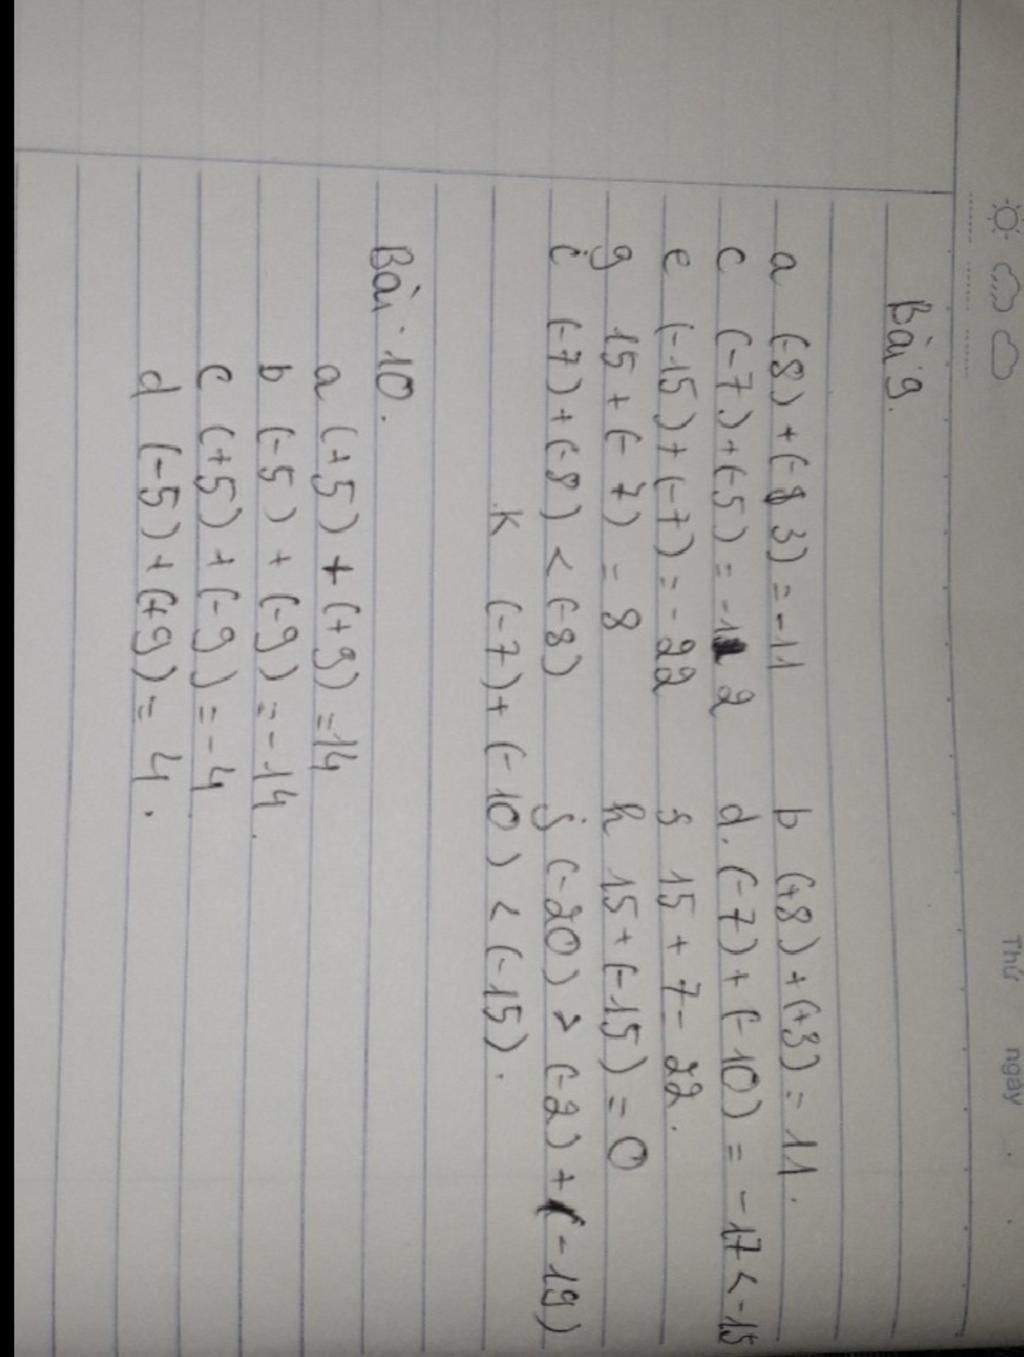 Thứ ngày
Bài 9.
a (-8) + (-3) = -11 b (+8) + (+3) = 11.
c (-7) + (-5) = -12 d. (-7) + (-10) = -17 < -15
e (-15) + (-7) = -22 f 15 + 7 - 22.
g 15 + (-7) = 8 h 15 + (-15) = 0
i (-7) + (-8) < (-8) j (-20) > (-2) + (-19)
k (-7) + (-10) < (-15).
Bài 10.
a (+5) + (+9) = 14
b (-5) + (-9) = -14.
c (+5) + (-9) = -4
d (-5) + (+9) = 4.